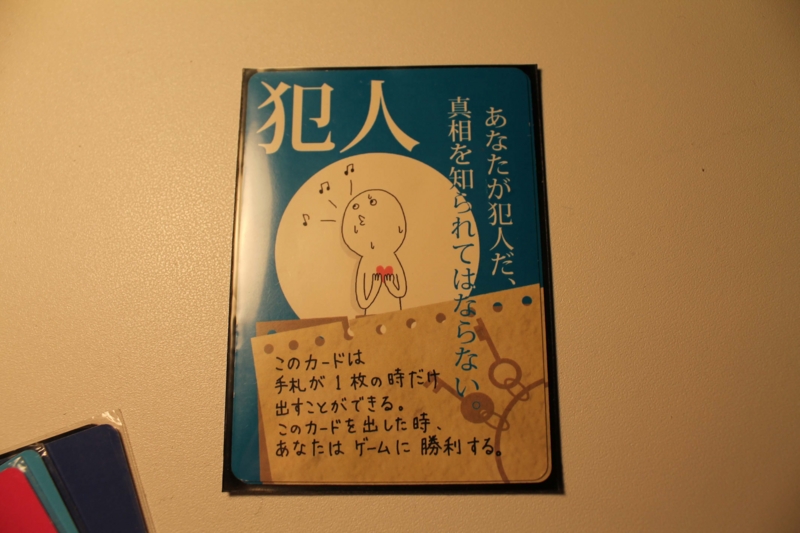 犯人
あなたが犯人だ、
真相を知られてはならない。
このカードは
手札が1枚の時だけ
出すことができる。
このカードを出した時、
あなたはゲームに勝利する。